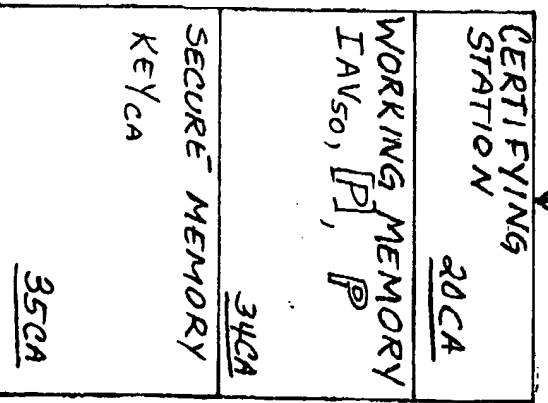 CERTIFYING
STATION
20CA
WORKING MEMORY
IAVSO, [P], P
34CA
SECURE MEMORY
KEYCA
35CA